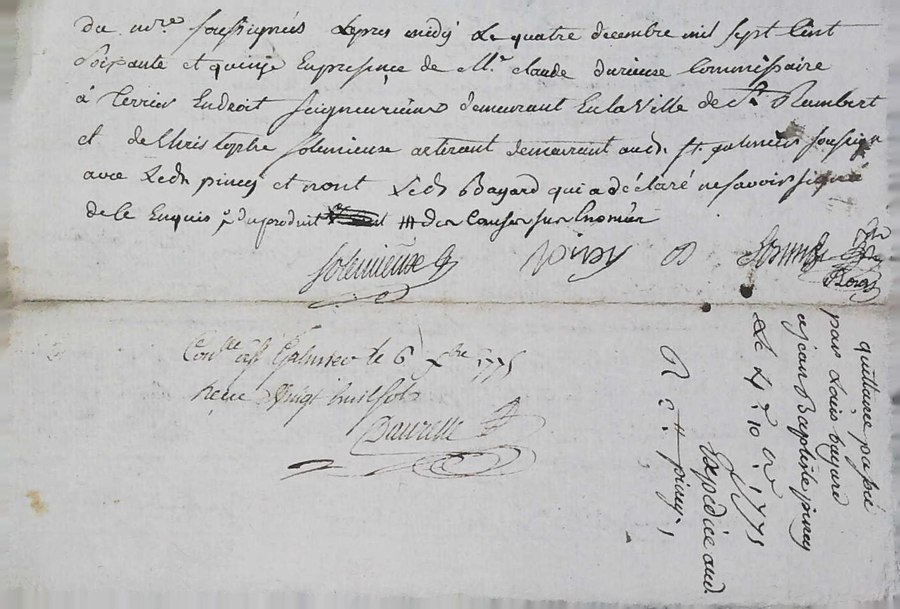 du nre. soussignés Lapres midy Le quatre decembre mil sept Cent
Soixante et quinze En presence de Mr. claude durieux Commissaire
à terrier En droit Seigneuriaux demeurant En la ville de St. Rambert
et de Christophe Solemieuse demeurant aud. st. galmier soussigné
avec Led. pincy et nont Led. Bayard qui a déclaré ne savoir signer
de ce Enquis du produit
Solemieux
pincy
Con.lle à St. Galmier le 6 Xbre 1775
Reçu vingt huit sols
quittance passé
par Louis bayard
a jean Baptiste pincy
Le 4 10 1775
Expédiée aud.
pincy